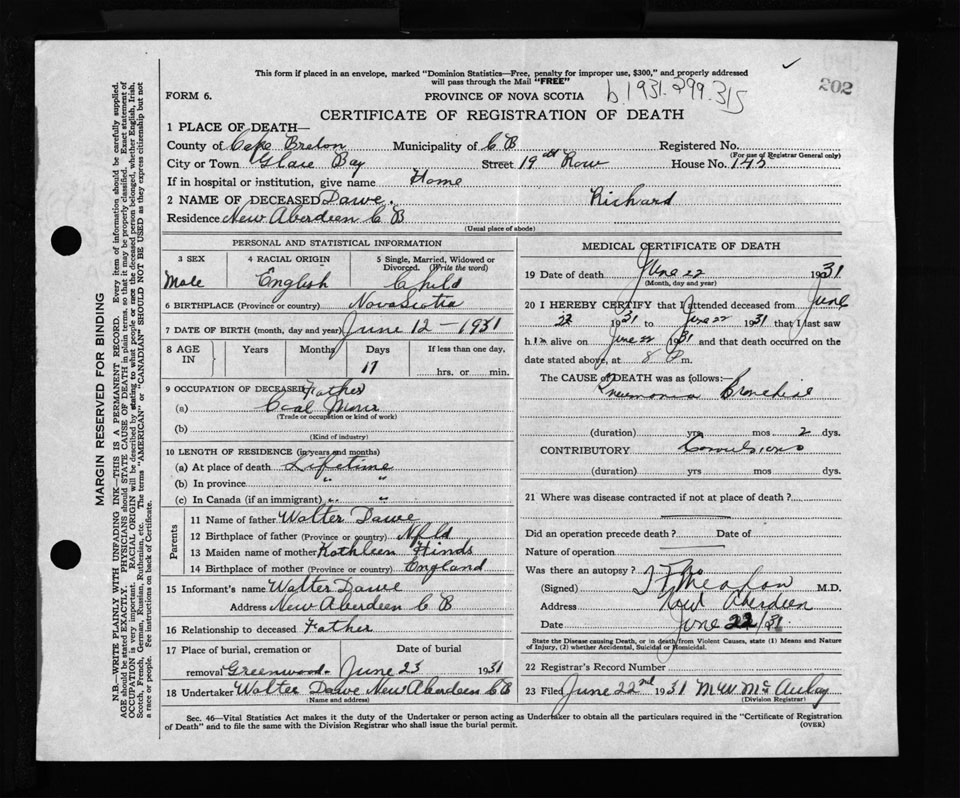 This form if placed in an envelope, marked "Dominion Statistics—Free, penalty for improper use, $300," and properly addressed
will pass through the Mail "FREE"
202
FORM 6.
PROVINCE OF NOVA SCOTIA
b.1931.299.315
CERTIFICATE OF REGISTRATION OF DEATH
1 PLACE OF DEATH—
County of Cape Breton Municipality of C B Registered No.
(For use of Registrar General only)
City or Town Glace Bay Street 19th Row House No. 145
If in hospital or institution, give name Home
2 NAME OF DECEASED Dawe, Richard
Residence New Aberdeen C B
(Usual place of abode)
PERSONAL AND STATISTICAL INFORMATION
3 SEX 4 RACIAL ORIGIN 5 Single, Married, Widowed or
Divorced. (Write the word)
Male English Child
6 BIRTHPLACE (Province or country) Nova Scotia
7 DATE OF BIRTH (month, day and year) June 12 - 1931
8 AGE IN Years Months Days If less than one day.
hrs. or min.
9 OCCUPATION OF DECEASED Father
(a) Coal Miner
(Trade or occupation or kind of work)
(b)
(Kind of industry)
10 LENGTH OF RESIDENCE (in years and months)
(a) At place of death Lifetime
(b) In province " "
(c) In Canada (if an immigrant) " "
Parents
11 Name of father Walter Dawe
12 Birthplace of father (Province or country) Nfld
13 Maiden name of mother Kathleen Hinds
14 Birthplace of mother (Province or country) England
15 Informant's name Walter Dawe
Address New Aberdeen C B
16 Relationship to deceased Father
17 Place of burial, cremation or Date of burial
removal Greenwood June 23 1931
18 Undertaker Walter Dawe New Aberdeen CB
(Name and address)
MEDICAL CERTIFICATE OF DEATH
19 Date of death June 22 1931
(Month, day and year)
20 I HEREBY CERTIFY that I attended deceased from June
22 1931 to June 22 1931 that I last saw
him alive on June 22 1931 and that death occurred on the
date stated above, at 8 P m.
The CAUSE OF DEATH was as follows:
Pneumonia Bronchial
(duration) yrs mos 2 dys.
CONTRIBUTORY Convulsions
(duration) yrs mos dys.
21 Where was disease contracted if not at place of death?
Did an operation precede death? Date of
Nature of operation
Was there an autopsy? No
(Signed) M.D.
Address New Aberdeen
Date June 22/31
State the Disease causing Death, or in death from Violent Causes, state (1) Means and Nature
of Injury, (2) whether Accidental, Suicidal or Homicidal.
22 Registrar's Record Number
23 Filed June 22nd 1931 M W McAulay
(Division Registrar)
Sec. 46—Vital Statistics Act makes it the duty of the Undertaker or person acting as Undertaker to obtain all the particulars required in the "Certificate of Registration
of Death" and to file the same with the Division Registrar who shall issue the burial permit.
(OVER)
MARGIN RESERVED FOR BINDING
N.B.—WRITE PLAINLY WITH UNFADING INK—THIS IS A PERMANENT RECORD. Every item of information should be carefully supplied.
AGE should be stated EXACTLY. PHYSICIANS should STATE CAUSE OF DEATH in plain terms, so that it may be properly classified. Exact statement of
OCCUPATION is very important. RACIAL ORIGIN will be described by stating to what people or race the deceased person belonged, whether English, Irish,
Scotch, French, German, Russian, Ruthenian, etc. The terms "AMERICAN" or "CANADIAN" SHOULD NOT BE USED as they express citizenship but not
a race or people. See instructions on back of Certificate.